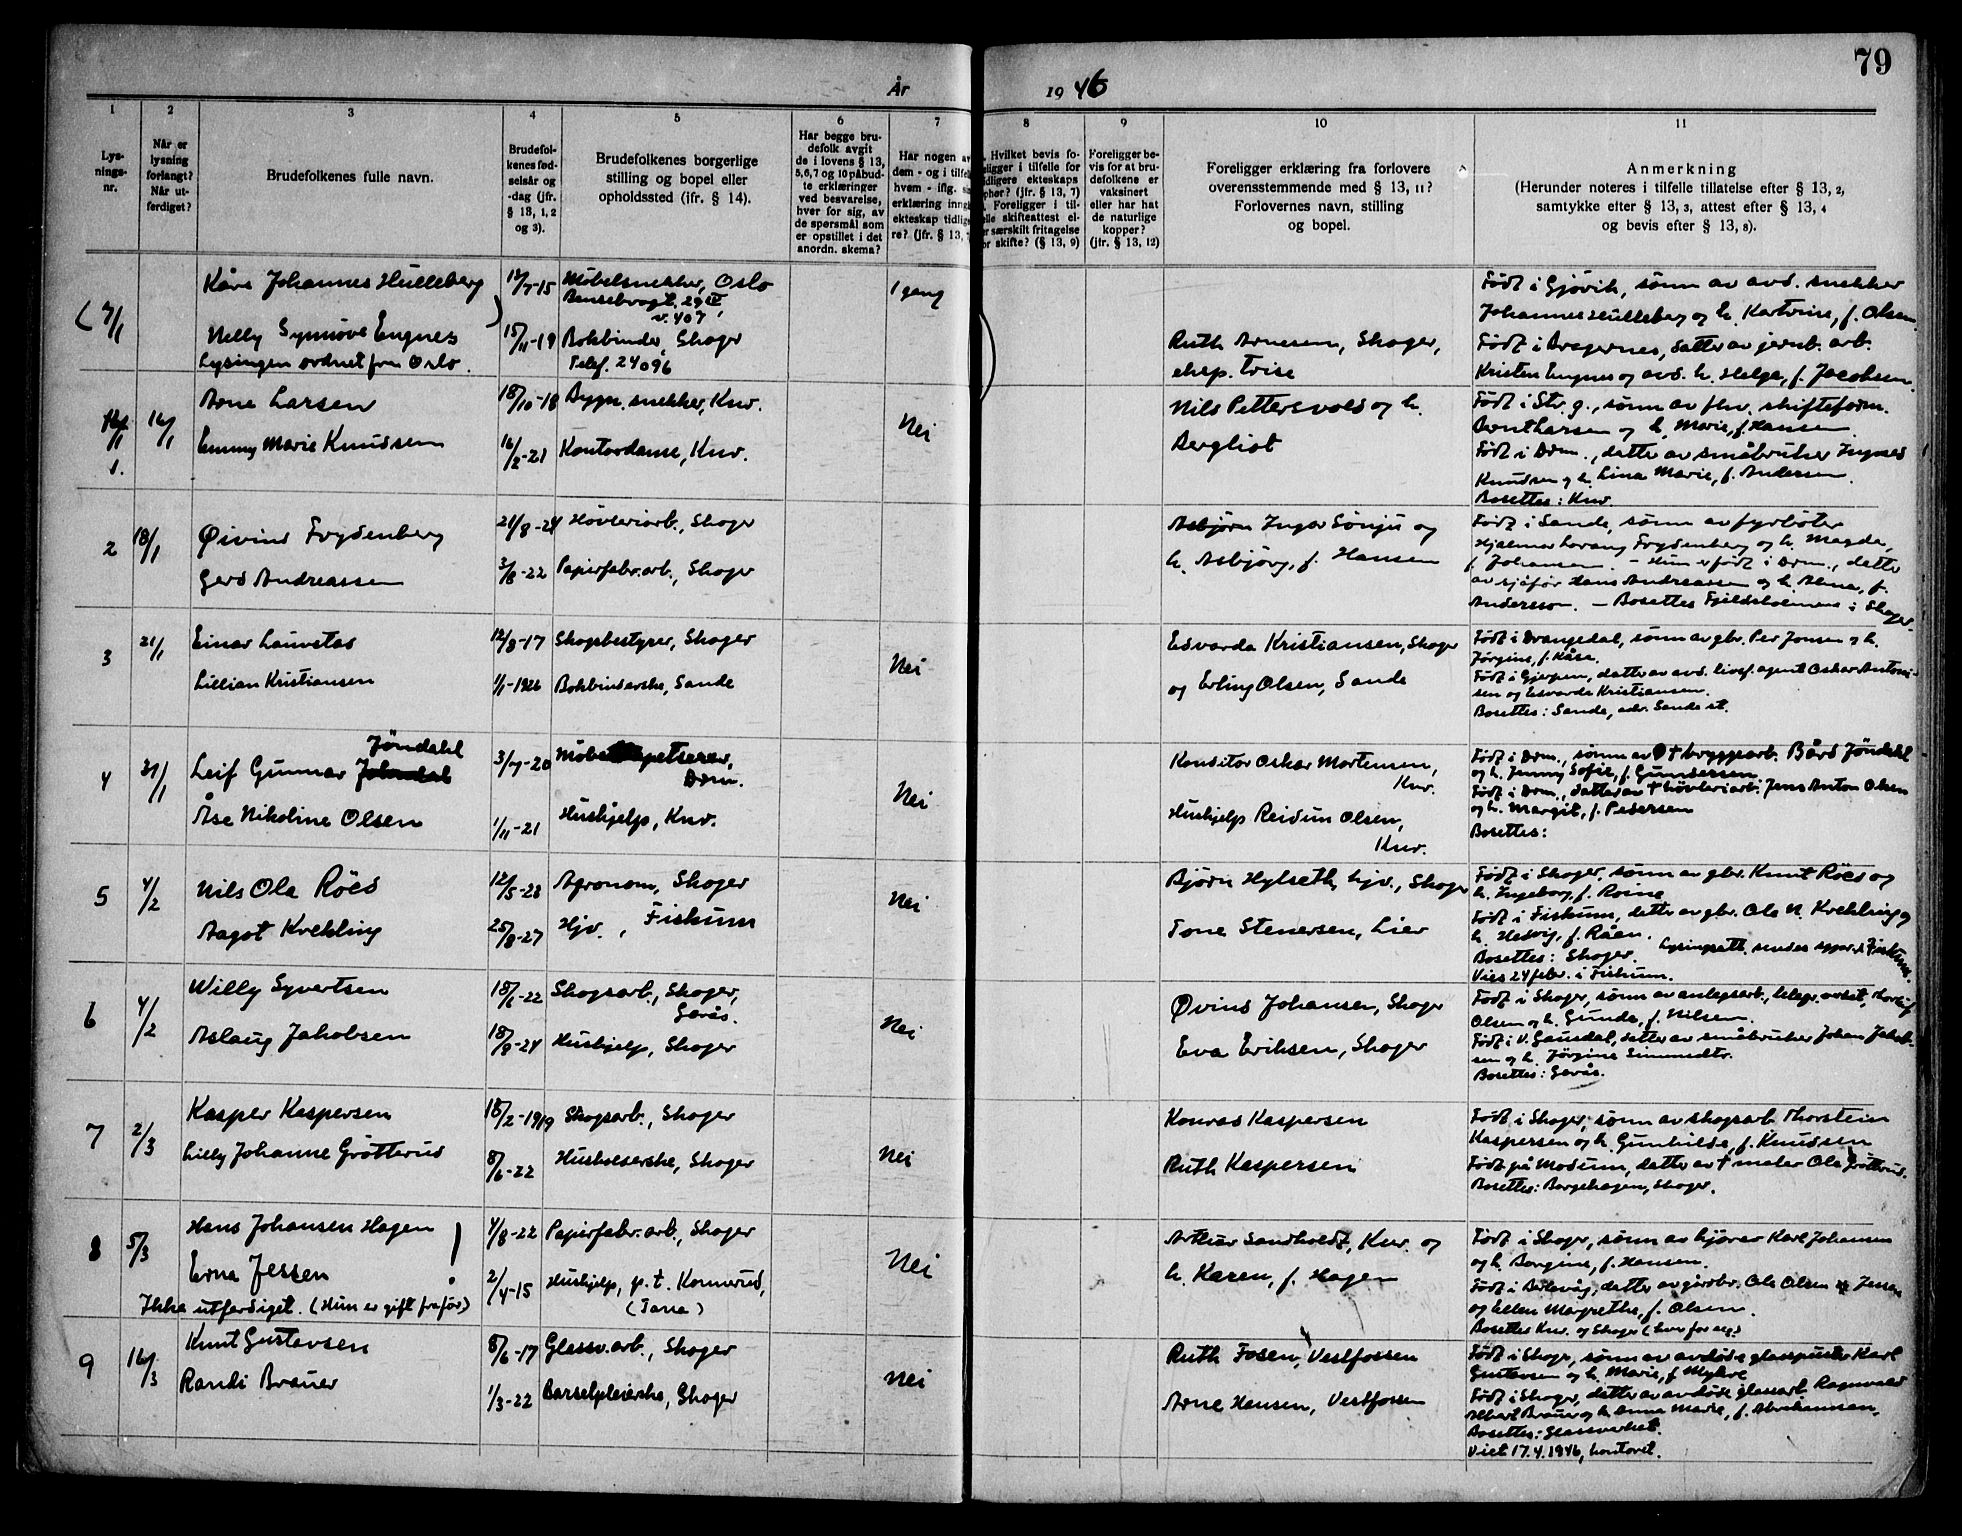 79
År 1946
1 2 3 4 5 6 7 8 9 10 11
Lys-
nings-
nr.
Når er
lysning
forlangt?
Når ut-
ferdiget?
Brudefolkenes fulle navn.
Brudefol-
kenes fød-
selsår og
-dag (jfr.
§ 13, 1, 2
og 3).
Brudefolkenes borgerlige
stilling og bopel eller
opholdssted (ifr. § 14).
Har begge bru-
defolk avgit
de i lovens § 13,
5,6,7 og 10 påbud-
te erklæringer
ved besvarelse,
hver for sig, av
de spørsmål som
er opstillet i det
anordn. skema?
Har nogen av
dem - og i tilfelle
hvem - iflg. sin
erklæring inngått
ekteskap tidlige-
re? (jfr. § 13,
Hvilket bevis fo-
religger i tilfelle for
tidligere ekteskaps
ophør? (jfr. § 13, 7)
Foreligger i til-
felle skifteattest el-
ler særskilt fritagelse
for skifte? (§ 13, 9)
Foreligger be-
vis for at bru-
defolkene er
vaksinert
eller har hat
de naturlige
kopper?
(jfr. § 13, 12)
Foreligger erklæring fra forlovere
overensstemmende med § 13, 11?
Forlovernes navn, stilling
og bopel.
Anmerkning
(Herunder noteres i tilfelle tillatelse efter § 13, 2,
samtykke efter § 13, 3, attest efter § 13, 4
og bevis efter § 13, 8).
(7/1
Kåre Johannes Hulleberg
Nelly Synnøve Engnes)
Lysingen ordnet fra Oslo.
12/7-15 Møbelsnekker, Oslo
29 IV
v. 407
15/11-19 Bokbinder, Skoger
Telef. 24096
1 gang
Ruth Arnesen, Skoger,
eksp. trise
Født i Gjøvik, sønn av avd. snekker
Johannes Hulleberg og h. Katrine, f. Olsen.
Født i Bragernes, datter av jernb. arb.
Kristen Engnes og avd. h. Helga, f. Jacobsen.
1. 16/1
Arne Larsen
Emmy Marie Knudsen
18/10-18 Bygn. snekker, Knv.
16/2-21 Kontordame, Knv.
Nei
Nils Pettersvold og h.
Bergliot
Født i Str.g., sønn av fhv. skifteform.
Bernt Larsen og h. Marie, f. Hansen.
Født i Drm., datter av småbruker Ingvald
Knudsen og h. Lina Marie, f. Andersen.
Bosettes: Knv.
2 18/1
Øivind Frydenberg
Gerd Andreassen
21/8-24 Høvleriarb., Skoger
3/8-22 Papirfabr.arb., Skoger
Asbjørn Ingar Sønju og
h. Asbjørg, f. Hansen
Født i Sande, sønn av fyrbøter
Hjalmar Lorang Frydenberg og h. Magda,
f. Johansen. - Hun er født i Drm., datter
av sjåfør Hans Andreassen og h. Alma, f.
Andersson. - Bosettes Fjeldsholmene i Skoger.
3 21/1
Einar Lauvstad
Lillian Kristiansen
12/8-17 Skogsbestyrer, Skoger
1/1-1926 Bokbinderske, Sande
Nei
Edvarda Kristiansen, Skoger
og Erling Olsen, Sande
Født i Drangedal, sønn av gbr. Per Jonsen og h.
Jørgine, f. Kåsa.
Født i Gjerpen, datter av avd. livsf. agent Oskar Antoni-
sen og Edvarda Kristiansen.
Bosettes: Sande, adr. Sande st.
4 31/1
Jöndahl
Leif Gunnar
Åse Nikoline Olsen
3/7-20 Møbeltapetserer,
Drm.
1/11-21 Hushjelp, Knv.
Nei
Konditor Oskar Mortensen,
Knv.
Hushjelp Reidun Olsen,
Knv.
Født i Drm., sønn av † bryggearb. Bård Jöndahl
og h. Jenny Sofie, f. Gundersen
Født i Drm., datter av † høvleriarb. Jens Anton Olsen
og h. Margit, f. Pedersen
Bosettes:
5 4/2
Nils Ole Röed
Aagot Krekling
12/5-22 Agronom, Skoger
25/8-27 Hjv., Fiskum
Nei
Bjørn Hylseth, hjv., Skoger
Tone Stenersen, Lier
Født i Skoger, sønn av gbr. Knut Röed og
h. Ingeborg, f. Roine
Født i Fiskum, datter av gbr. Ole N. Krekling og
h. Hedvig, f. Råen.
Bosettes: Skoger. Lysingsatt. sendes sognepr. i Fiskum.
Vies 24 febr. i Fiskum.
6 4/2
Willy Syvertsen
Aslaug Jakobsen
18/6-22 Skogsarb., Skoger,
Gerås.
18/9-24 Hushjelp, Skoger
Nei
Øvind Johansen, Skoger
Eva Eriksen, Skoger
Født i Skoger, sønn av anlegsarb.,
Olsen og h. Gunda, f. Nilsen.
Født i V. Gausdal, datter av småbruker Johan Jakob-
sen og h. Jørgine Simensdtr.
Bosettes: Gerås.
7 2/3
Kasper Kaspersen
Lilly Johanne Grøtterud
18/2-1919 Skogsarb., Skoger
8/6-22 Husholderske, Skoger
Nei
Konrad Kaspersen
Ruth Kaspersen
Født i Skoger, sønn av skogsarb. Thorstein
Kaspersen og h. Gunhilda, f. Knudsen
Født på Modum, datter av † maler Ole Grøtterud.
Bosettes: Borgehagen, Skoger.
8 5/3
Hans Johansen Hagen
Erna Jessen
Ikke utferdiget. (Hun er gift fraför)
4/8-22 Papirfabr.arb., Skoger
2/4-15 Hushjelp, p.t. Konnerud,
(Tana)
Nei
Arthur Sandholdt, Knv. og
h. Karen, f. Hagen
Født i Skoger, sønn av kjører Karl Johansen
og h. Borgine, f. Hansen.
Født i Berlevåg, datter av gårdbr. Ole Olsen Jessen
og Ellen Margrethe, f. Olsen.
Bosettes Knv. og Skoger (hver for seg)
9 16/3
Knut Gustavsen
Randi Brauer
8/6-17 Glassv.arb., Skoger
1/3-22 Barselpleierske, Skoger
Nei
Ruth Fosen, Vestfossen
Arne Hansen, Vestfossen
Født i Skoge, sønn av avdøde glasspuster Karl
Gustavsen og h. Marie, f. Myhre
Født i Skoger, datter av avdøde glassarb. Ragnvald
Albert Brauer og h. Anna Marie, f. Abrahamsen,
Bosettes: Glassverket.
Viet 17.4.1946, kontoret.